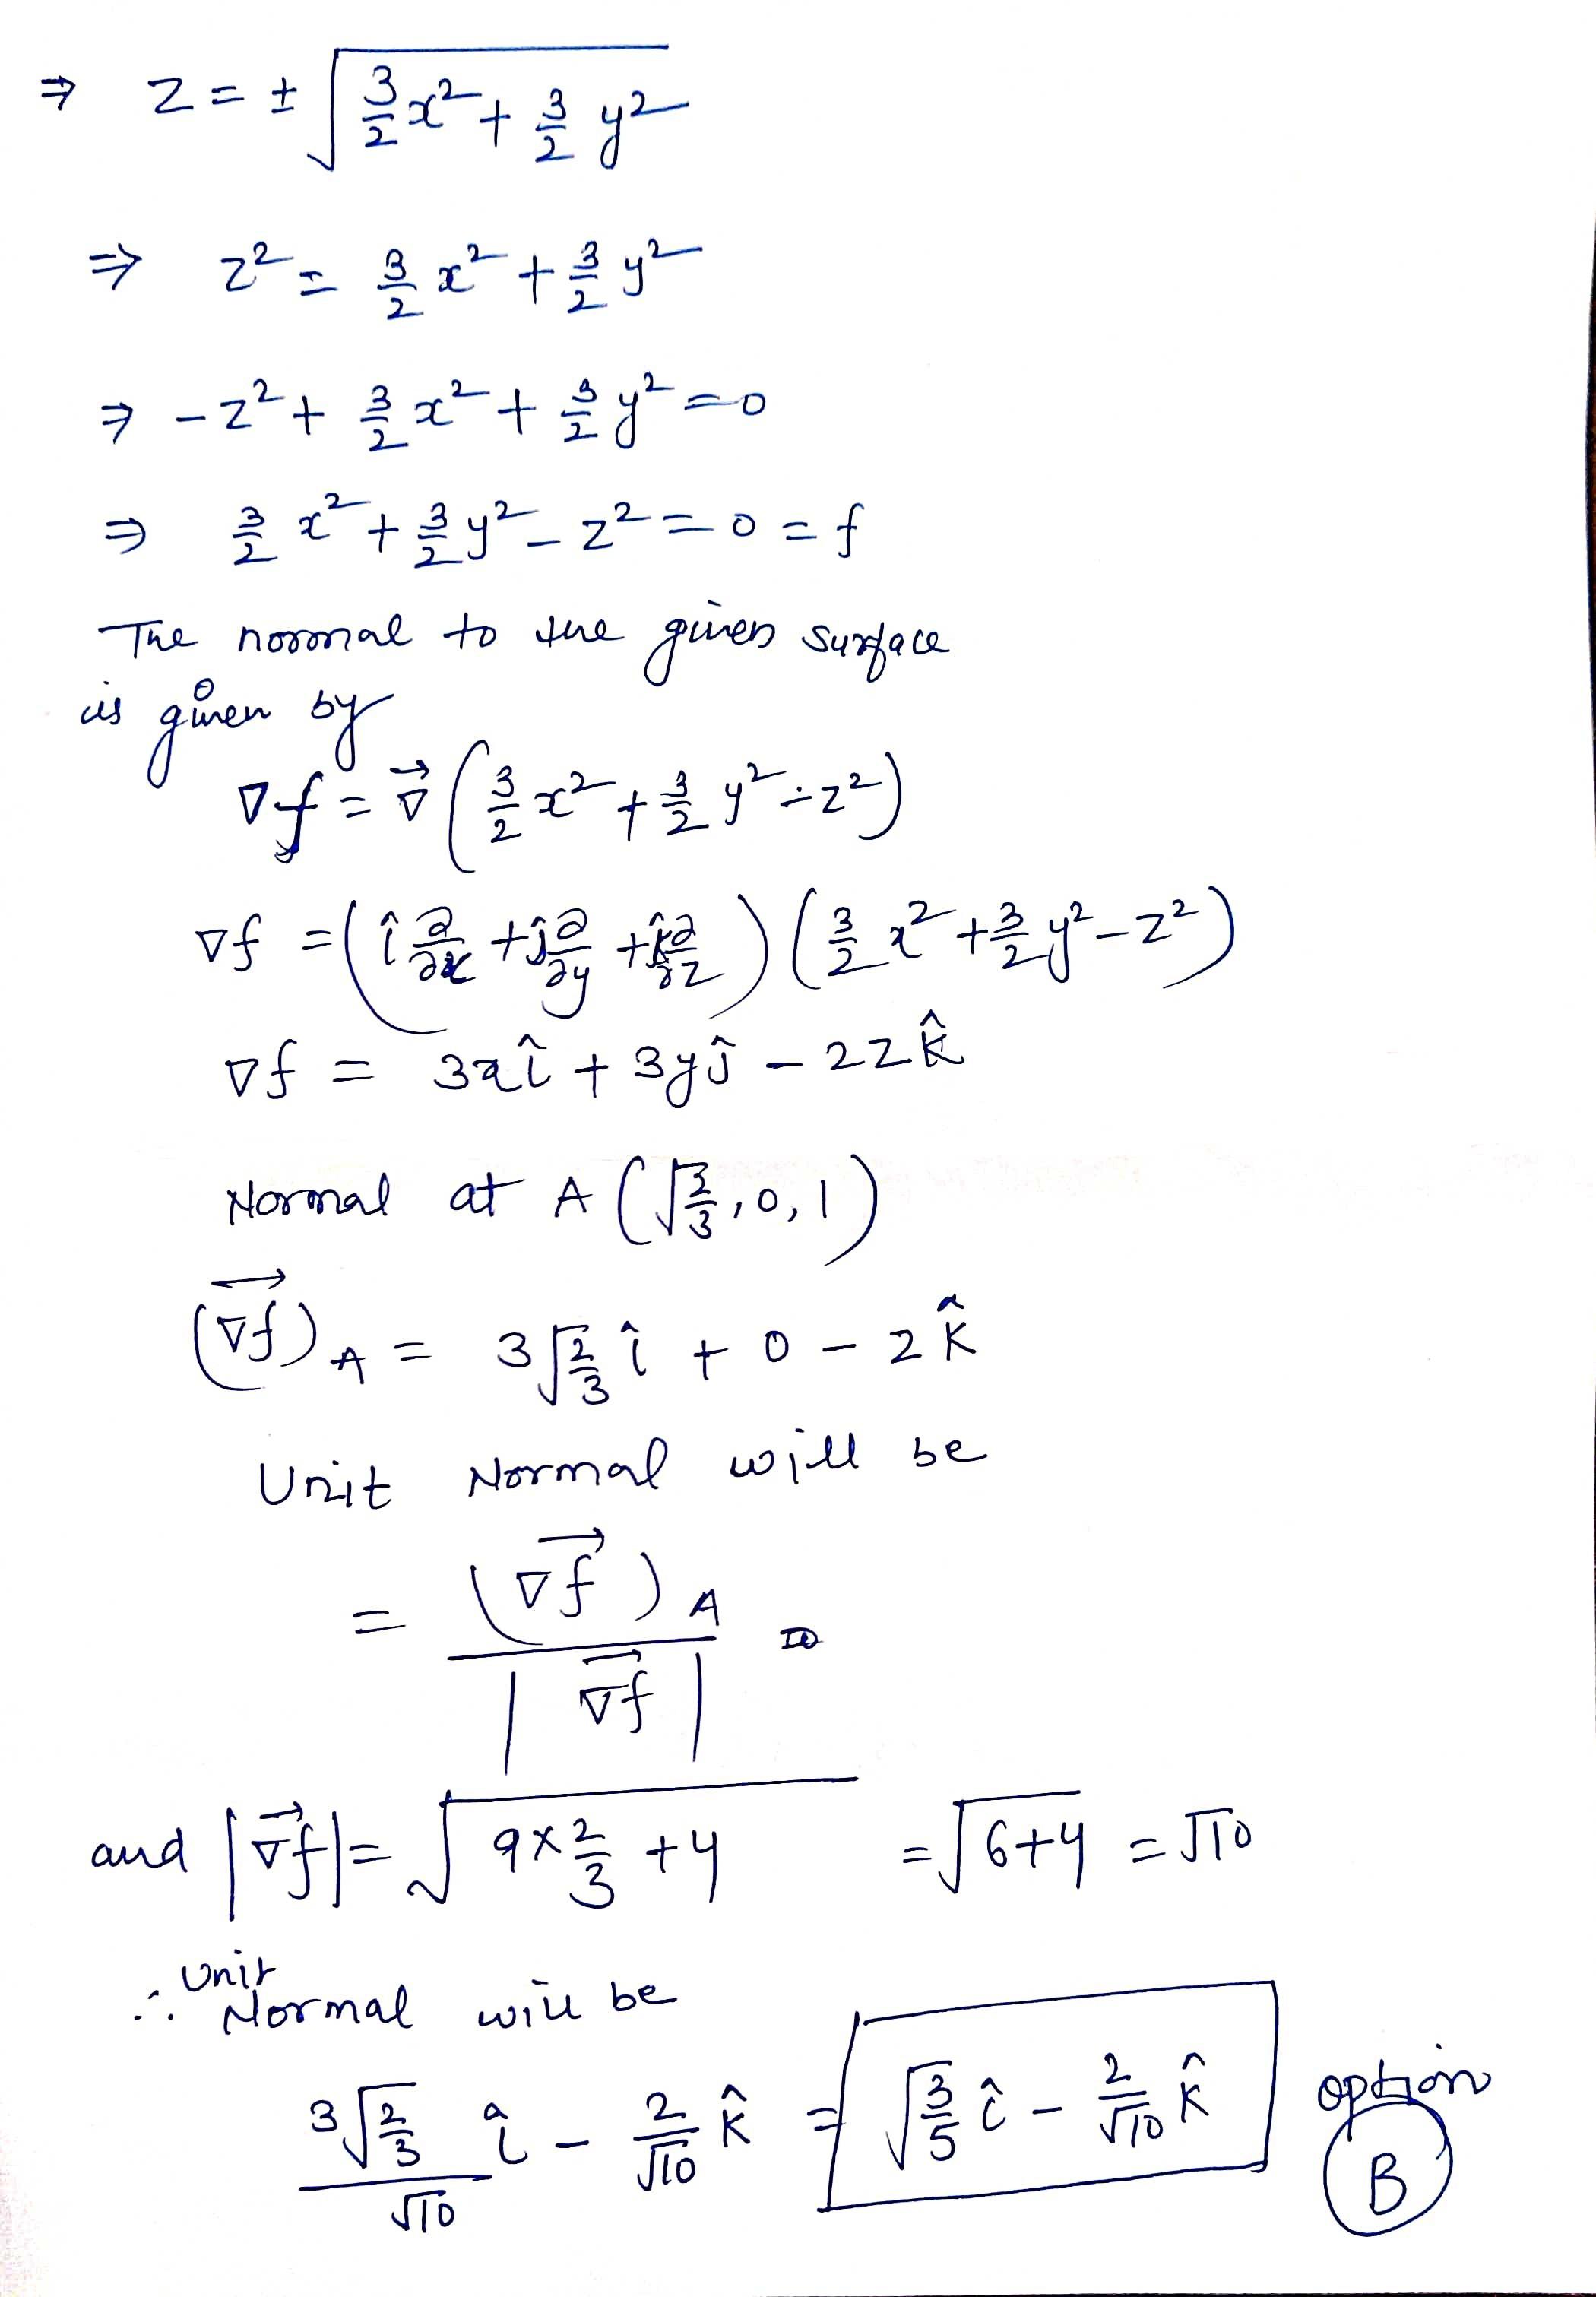 ⇒ z = ± √(3/2 x² + 3/2 y²)
⇒ z² = 3/2 x² + 3/2 y²
⇒ -z² + 3/2 x² + 3/2 y² = 0
⇒ 3/2 x² + 3/2 y² - z² = 0 = f
The normal to the given surface
is given by
∇f = ∇⃗ (3/2 x² + 3/2 y² - z²)
∇f = (î ∂/∂x + ĵ ∂/∂y + k̂ ∂/∂z) (3/2 x² + 3/2 y² - z²)
∇f = 3x î + 3y ĵ - 2z k̂
Normal at A (√(2/3), 0, 1)
(∇f)⃗ A = 3√(2/3) î + 0 - 2 k̂
Unit Normal will be
= (∇f⃗)A / |∇f⃗|
and |∇⃗f| = √(9×2/3 + 4) = √(6+4) = √10
∴ Unit Normal will be
3√(2/3)/√10 î - 2/√10 k̂ = √(3/5) î - 2/√10 k̂ option B